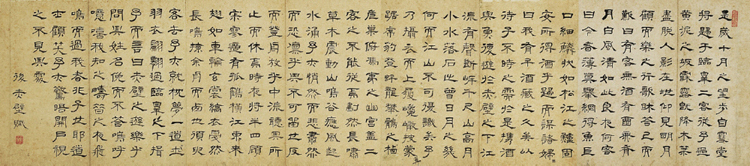 是歲十月之望步自雪堂
將歸于臨皋二客從予過
黃泥之坂霜露既降木葉
盡脫人影在地仰見明月
顧而樂之行歌相答已而
歎曰有客無酒有酒無肴
月白風清如此良夜何客
曰今者薄暮舉網得魚巨
口細鱗狀如松江之鱸顧
安所得酒乎歸而謀諸婦
曰我有斗酒藏之久矣以
待子不時之需於是攜酒
與魚復遊於赤壁之下江
流有聲斷岸千尺山高月
小水落石出曾日月之幾
何而江山不可復識矣予
乃攝衣而上履巉巖披蒙茸
踞虎豹登虯龍攀棲鶻之危
巢俯馮夷之幽宮蓋二
客不能從焉劃然長嘯
草木震動山鳴谷應風起
水涌予亦悄然而悲肅然
而恐凜乎其不可留也反
而登舟放乎中流聽其所
止而休焉時夜將半四顧
寂寥適有孤鶴橫江東來
翅如車輪玄裳縞衣戛然
長鳴掠予舟而西也須臾
客去予亦就睡夢一道士
羽衣翩躚過臨皋之下揖
予而言曰赤壁之遊樂乎
問其姓名俛而不答嗚呼
噫嘻我知之矣疇昔之夜飛
鳴而過我者非子也耶道
士顧笑予亦驚寤開戶視
之不見其處
後赤壁賦